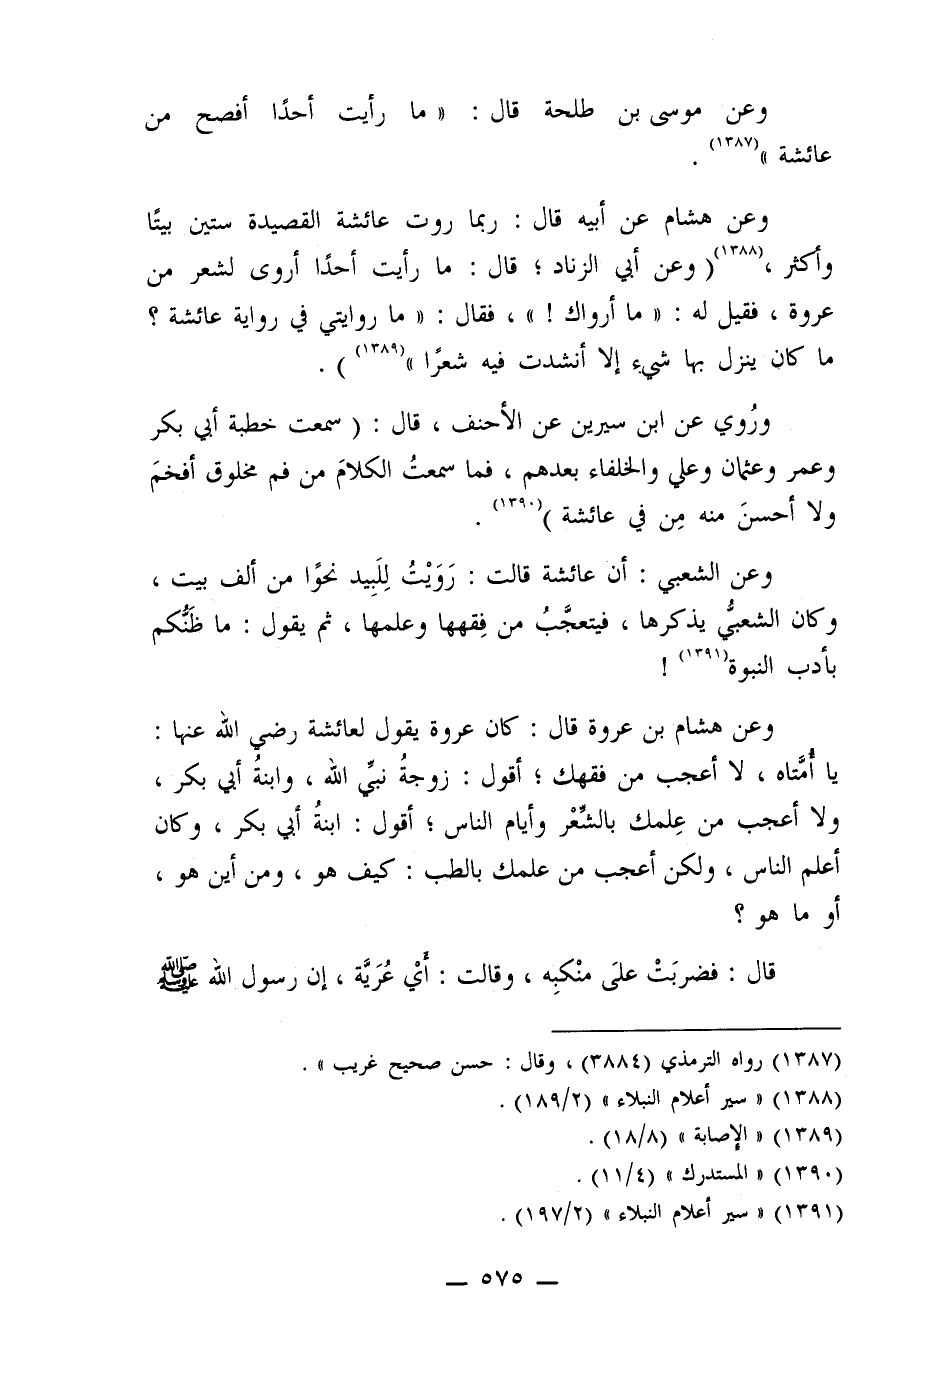 وعن موسى بن طلحة قال : « ما رأيت أحدًا أفصح من
عائشة »(١٣٨٧) .
وعن هشام عن أبيه قال : ربما روت عائشة القصيدة ستين بيتًا
وأكثر ،(١٣٨٨)( وعن أبي الزناد ؛ قال : ما رأيت أحدًا أروى لشعر من
عروة ، فقيل له : « ما أرواك ! » ، فقال : « ما روايتي في رواية عائشة ؟
ما كان ينزل بها شيء إلا أنشدت فيه شعرًا »(١٣٨٩) ) .
ورُوي عن ابن سيرين عن الأحنف ، قال : ( سمعت خطبة أبي بكر
وعمر وعثمان وعلي والخلفاء بعدهم ، فما سمعتُ الكلامَ من فم مخلوق أفخمَ
ولا أحسنَ منه مِن في عائشة )(١٣٩٠) .
وعن الشعبي : أن عائشة قالت : رَوَيْتُ لِلَبِيد نحوًا من ألف بيت ،
وكان الشعبيُّ يذكرها ، فيتعجَّبُ من فِقهها وعلمها ، ثم يقول : ما ظَنُّكم
بأدب النبوة(١٣٩١) !
وعن هشام بن عروة قال : كان عروة يقول لعائشة رضي الله عنها :
يا أُمَّتاه ، لا أعجب من فقهك ؛ أقول : زوجةُ نبيِّ الله ، وابنةُ أبي بكر ،
ولا أعجب من عِلمك بالشِّعْر وأيام الناس ؛ أقول : ابنةُ أبي بكر ، وكان
أعلم الناس ، ولكن أعجب من علمك بالطب : كيف هو ، ومن أين هو ،
أو ما هو ؟
قال : فضربَتْ علىَ منْكبِه ، وقالت : أَيْ عُرَيَّة ، إن رسول الله ﷺ
(١٣٨٧) رواه الترمذي (٣٨٨٤) ، وقال : حسن صحيح غريب » .
(١٣٨٨) « سير أعلام النبلاء » (١٨٩/٢) .
(١٣٨٩) « الإصابة » (١٨/٨) .
(١٣٩٠) « المستدرك » (١١/٤) .
(١٣٩١) « سير أعلام النبلاء » (١٩٧/٢) .
— ٥٧٥ —